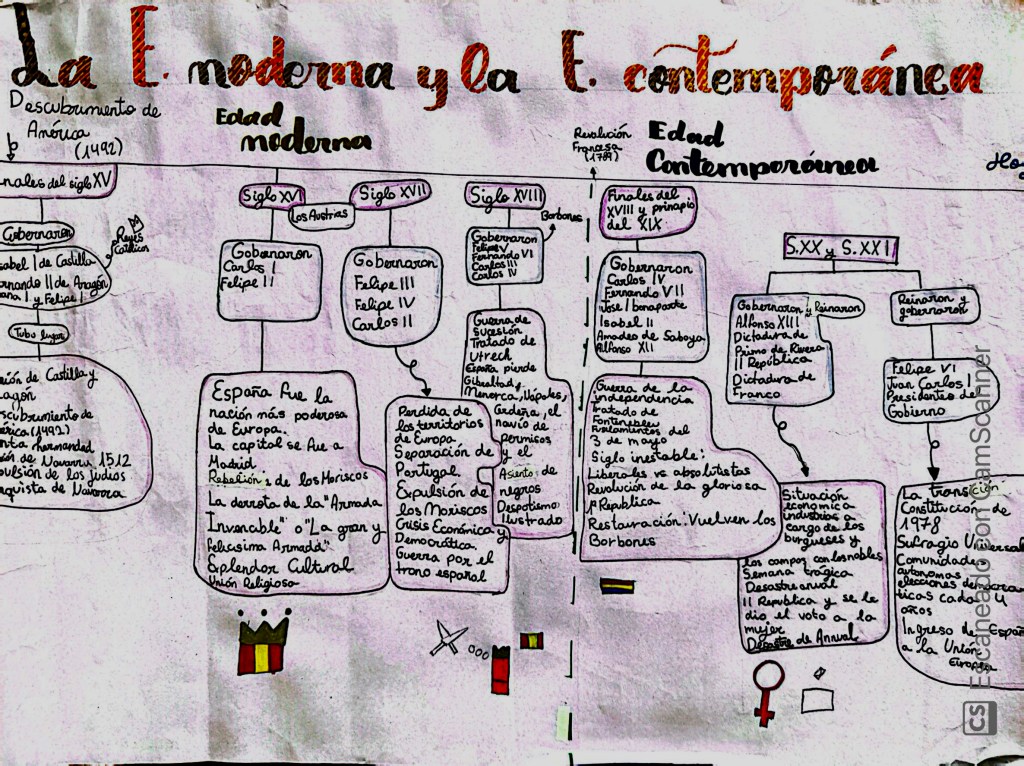 La E. moderna y la E. contemporánea
Descubrimiento de
América
(1492)
Edad
moderna
Revolución
Francesa
(1789)
Edad
Contemporánea
Hoy
nales del siglo XV
Gobernaron
Reyes
Católicos
sabel I de Castilla
rnando II de Aragón
ana I y Felipe I
Tubo lugar
nión de Castilla y
agón
scubrimiento de
érica (1492)
nta hermandad
ión de Navarra 1512
pulsión de los judios
nquista de Navarra
Siglo XVI
Los Austrias
Siglo XVII
Gobernaron
Carlos I
Felipe II
Gobernaron
Felipe III
Felipe IV
Carlos II
España fue la
nación más poderosa
de Europa.
La capital se fue a
Madrid
Rebelión de los Moriscos
La derrota de la "Armada
Invencible" o "La gran y
felicisima Armada"
Esplendor Cultural
Unión Religiosa
Perdida de
los territorios
de Europa.
Separación de
Portugal.
Expulsión de
los Moriscos
Crisis Económica y
Democrática.
Guerra por el
trono español
Siglo XVIII
Borbones
Gobernaron
Felipe V
Fernando VI
Carlos III
Carlos IV
Guerra de
Sucesión
Tratado de
Utrech
España pierde
Gibraltar,
Menorca, Nápoles,
Cerdeña, el
navío de
permisos
y el
Asiento de
negros
Despotismo
Ilustrado
Finales del
XVIII y prinapio
del XIX
Gobernaron
Carlos IV
Fernando VII
Jose I bonaparte
Isabel II
Amadeo de Saboya
Alfonso XII
Guerra de la
independencia
Tratado de
Fontenebleu
Fusilamientos del
3 de mayo
Siglo inestable:
Liberales vs absolutistas
Revolución de la gloriosa
1ª República
Restauración: Vuelven los
Borbones
S.XX y S.XXI
Gobernaron y Reinaron
Alfonso XIII
Dictadura de
Primo de Rivera
II República
Dictadura de
Franco
Situación
economica
industrias a
cargo de los
burgueses y
los campos con los nobles
Semana trágica
Desastre anual
II Republica y se le
dio el voto a la
mujer
Desastre de Annual
Reinaron y
gobernaron
Felipe VI
Juan Carlos I
Presidentes de
Gobierno
La transición
Constitución de
1978
Sufragio Universal
Comunidades
autonomas
elecciones democra-
ticas cada 4
años
Ingreso de Españ
a la Unión
Europea
Escaneado con CamScanner
CS